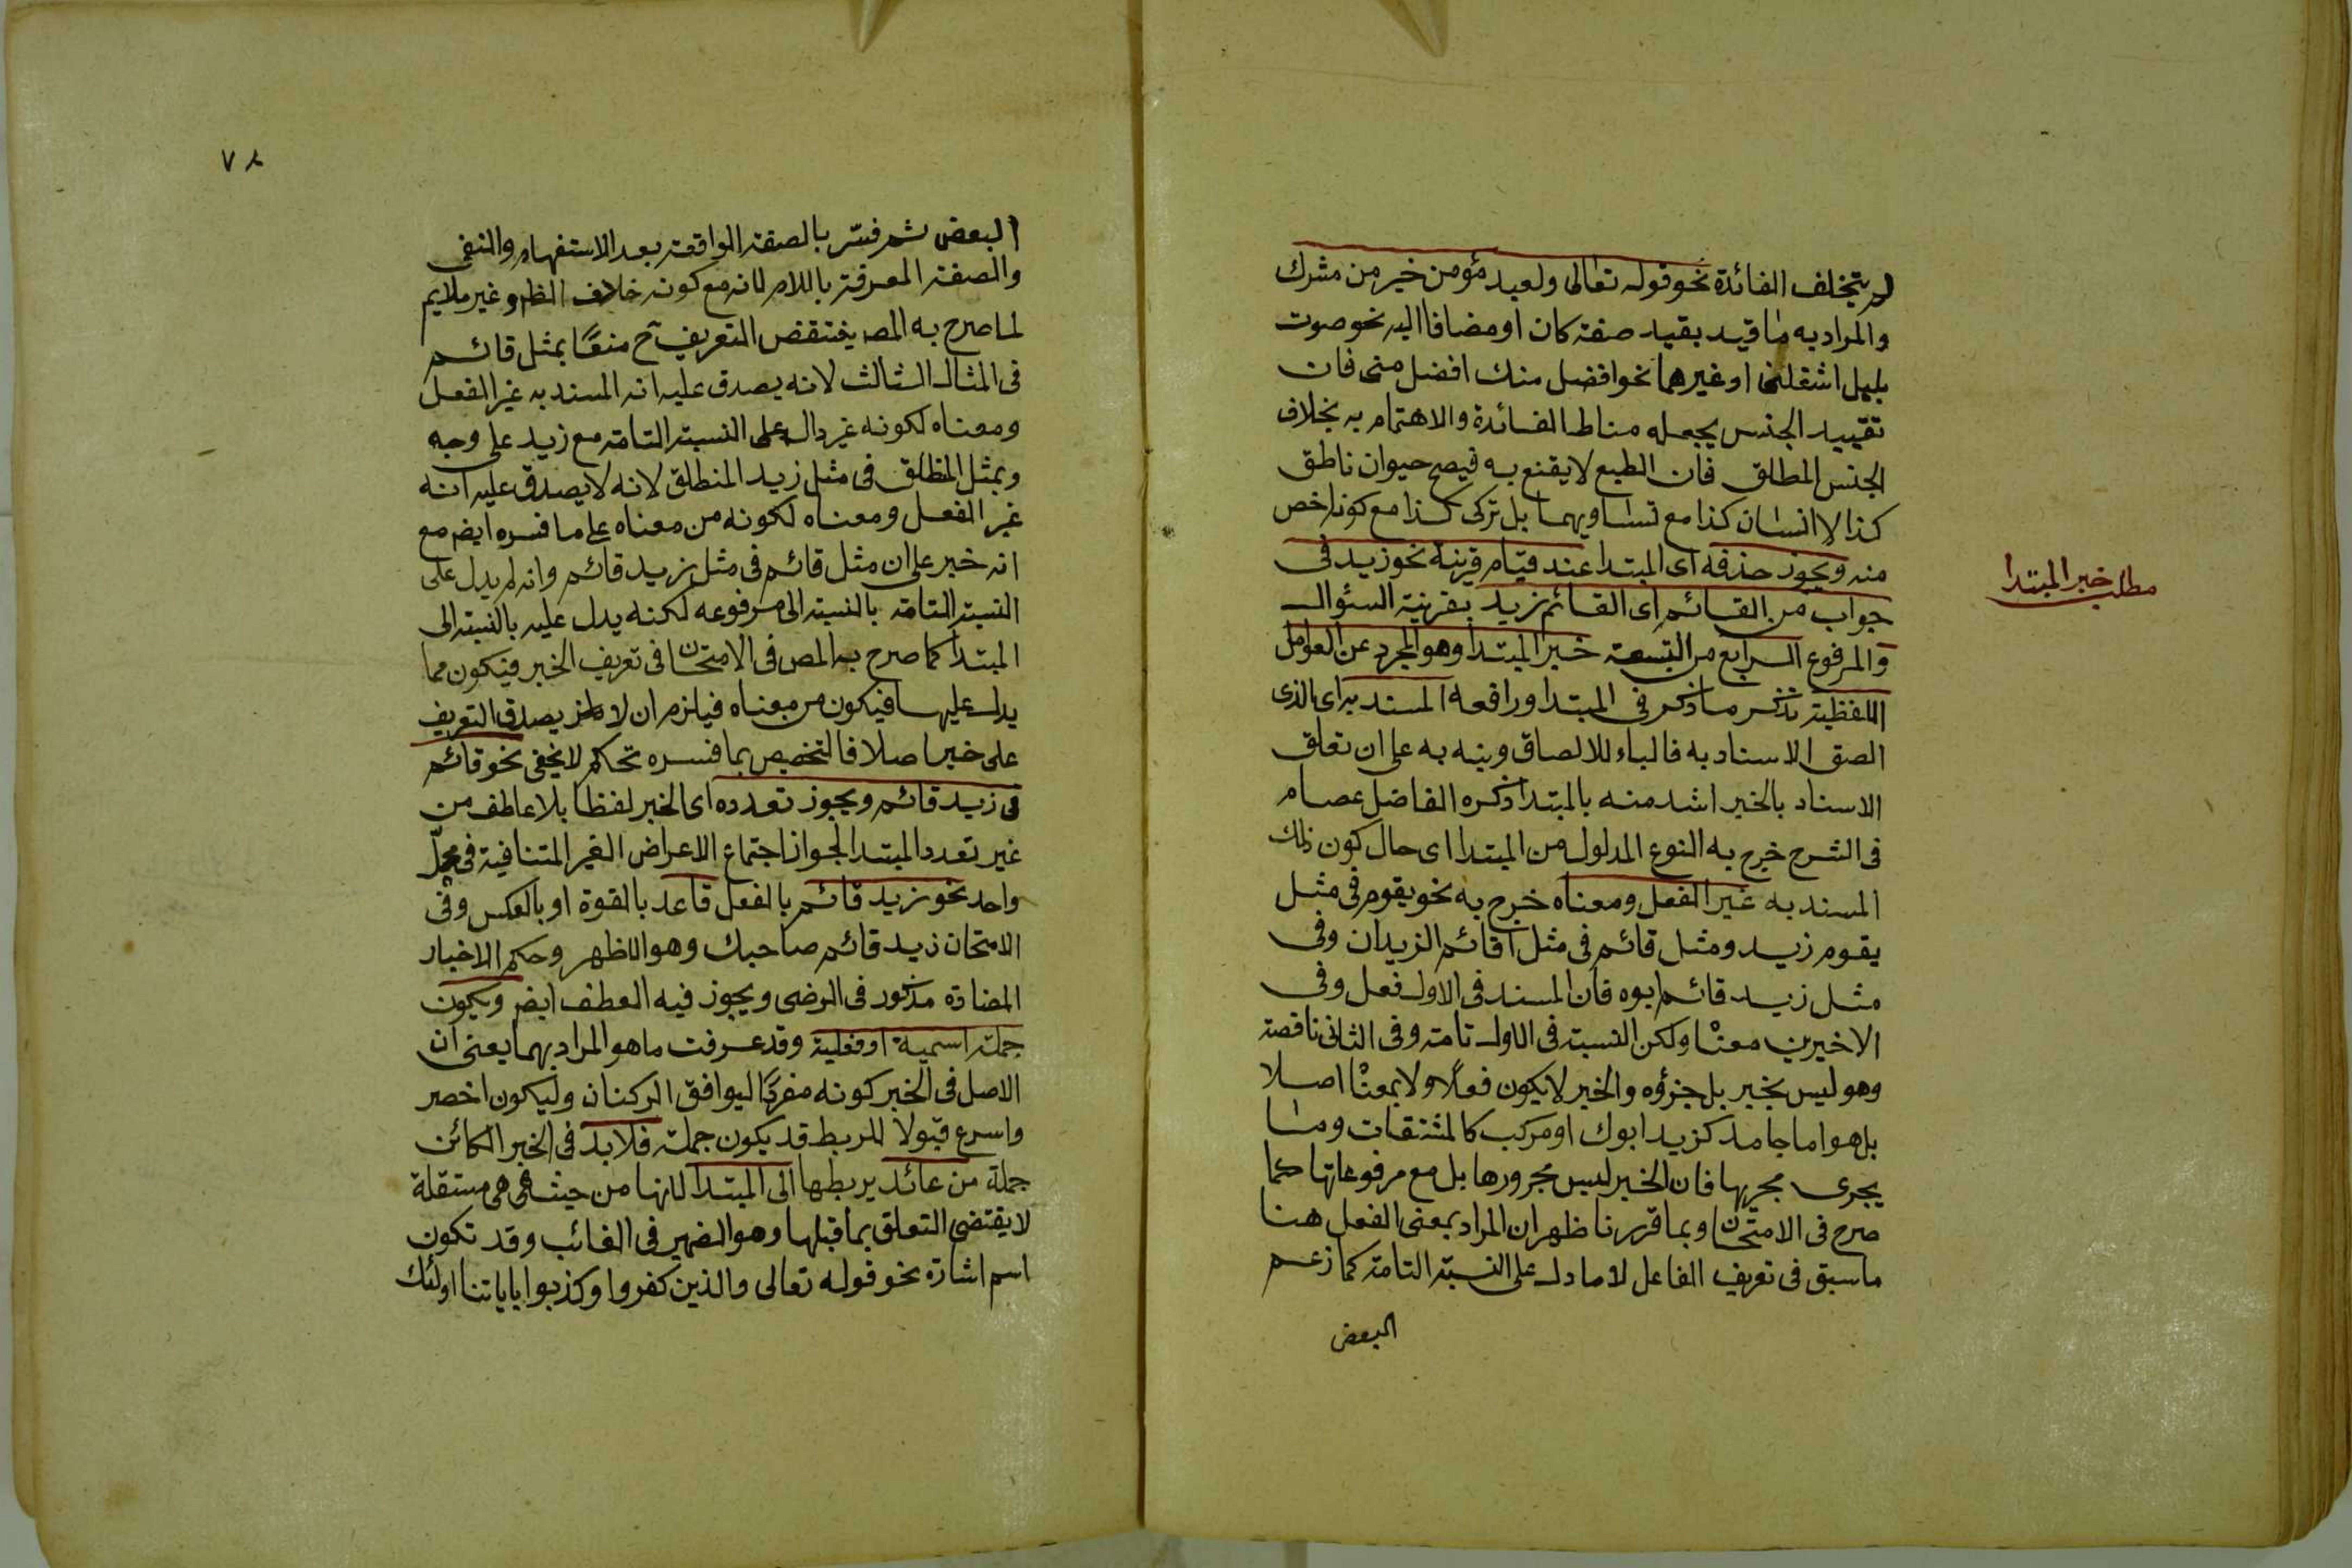 لم يتخلف الفائدة نحو قوله تعالى ولعبد مؤمن خير من مشرك
والمراد به ما قيد بقيد صفة كان او مضافا اليه نحو صوت
بلبل اشغلنى او غيرهما نحو افضل منك افضل منى فان
تقييد الجنس يجعله مناط الفائدة والاهتمام به بخلاف
الجنس المطلق فان الطبع لا يقنع به فيصح حيوان ناطق
كذا لا انسان كذا مع تساويهما بل تركى كذا مع كونه اخص
منه ويجوز حذفه اى المبتدا عند قيام قرينة نحو زيد فى
جواب من القائم اى القائم زيد بقرينة السئوال
والمرفوع الرابع من التسعة خبر المبتدا وهو المجرد عن العوامل
اللفظية تذكر ما ذكر فى المبتدا ورافعه المسند به اى الذى
الصق الاسناد به فالباء للالصاق وينبه به على ان تعلق
الاسناد بالخبر اشد منه بالمبتدا ذكره الفاضل عصام
فى الشرح خرج به النوع المدلول من المبتدا اى حال كون ذلك
المسند به غير الفعل ومعناه خرج به نحو يقوم فى مثل
يقوم زيد ومثل قائم فى مثل اقائم الزيدان وفى
مثل زيد قائم ابوه فان المسند فى الاول فعل وفى
الاخيرين معنا ولكن النسبة فى الاول تامة وفى الثانى ناقصة
وهو ليس بخبر بل جزؤه والخبر لا يكون فعلا ولا بمعنا اصلا
بل هو اما جامد كزيد ابوك او مركب كالمشتقات وما
يجرى مجريها فان الخبر ليس مجرورها بل مع مرفوعاتها كما
صرح فى الامتحان وبما قررنا ظهر ان المراد بمعنى الفعل هنا
ما سبق فى تعريف الفاعل لا ما دل على النسبة التامة كما زعم
البعض
مطلب خبر المبتدا
٧٨
البعض ثم فسر بالصفة الواقعة بعد الاستفهام والنفى
والصفة المعرفة باللام لانه مع كونه خلاف الظ وغير ملايم
لما صرح به المصـ ينتقض التعريف ح منعا بمثل قائم
فى المثال الثالث لانه يصدق عليه انه المسند به غير الفعل
ومعناه لكونه غير دال على النسبة التامة مع زيد على وجه
وبمثل المنطلق فى مثل زيد المنطلق لانه لا يصدق عليه انه
غير الفعل ومعناه لكونه من معناه على ما فسره ايضا مع
انه خبر على ان مثل قائم فى مثل زيد قائم وانه لم يدل على
النسبة التامة بالنسبة الى مرفوعه لكنه يدل عليه بالنسبة الى
المبتدا كما صرح به المصـ فى الامتحان فى تعريف الخبر فيكون مما
يدل عليها فيكون من معناه فيلزم ان لا يصدق التعريف
على خبر اصلا فالتخصيص بما فسره تحكم لا يخفى نحو قائم
فى زيد قائم ويجوز تعدده اى الخبر لفظا بلا عاطف من
غير تعدد المبتدا لجواز اجتماع الاعراض الغير المتنافية فى محل
واحد نحو زيد قائم بالفعل قاعد بالقوة او بالعكس وفى
الامتحان زيد قائم صاحبك وهو الاظهر وحكم الاخبار
المضادة مذكور فى الرضى ويجوز فيه العطف ايضا ويكون
جملة اسمية او فعلية وقد عرفت ما هو المراد بهما يعنى ان
الاصل فى الخبر كونه مفردا ليوافق الركنان وليكون اخصر
واسرع قبولا للربط قد يكون جملة فلابد فى الخبر الكائن
جملة من عائد يربطها الى المبتدا لانها من حيث هى هى مستقلة
لا يقتضى التعلق بما قبلها وهو الضمير فى الغائب وقد تكون
اسم اشارة نحو قوله تعالى والذين كفروا وكذبوا باياتنا اولئك